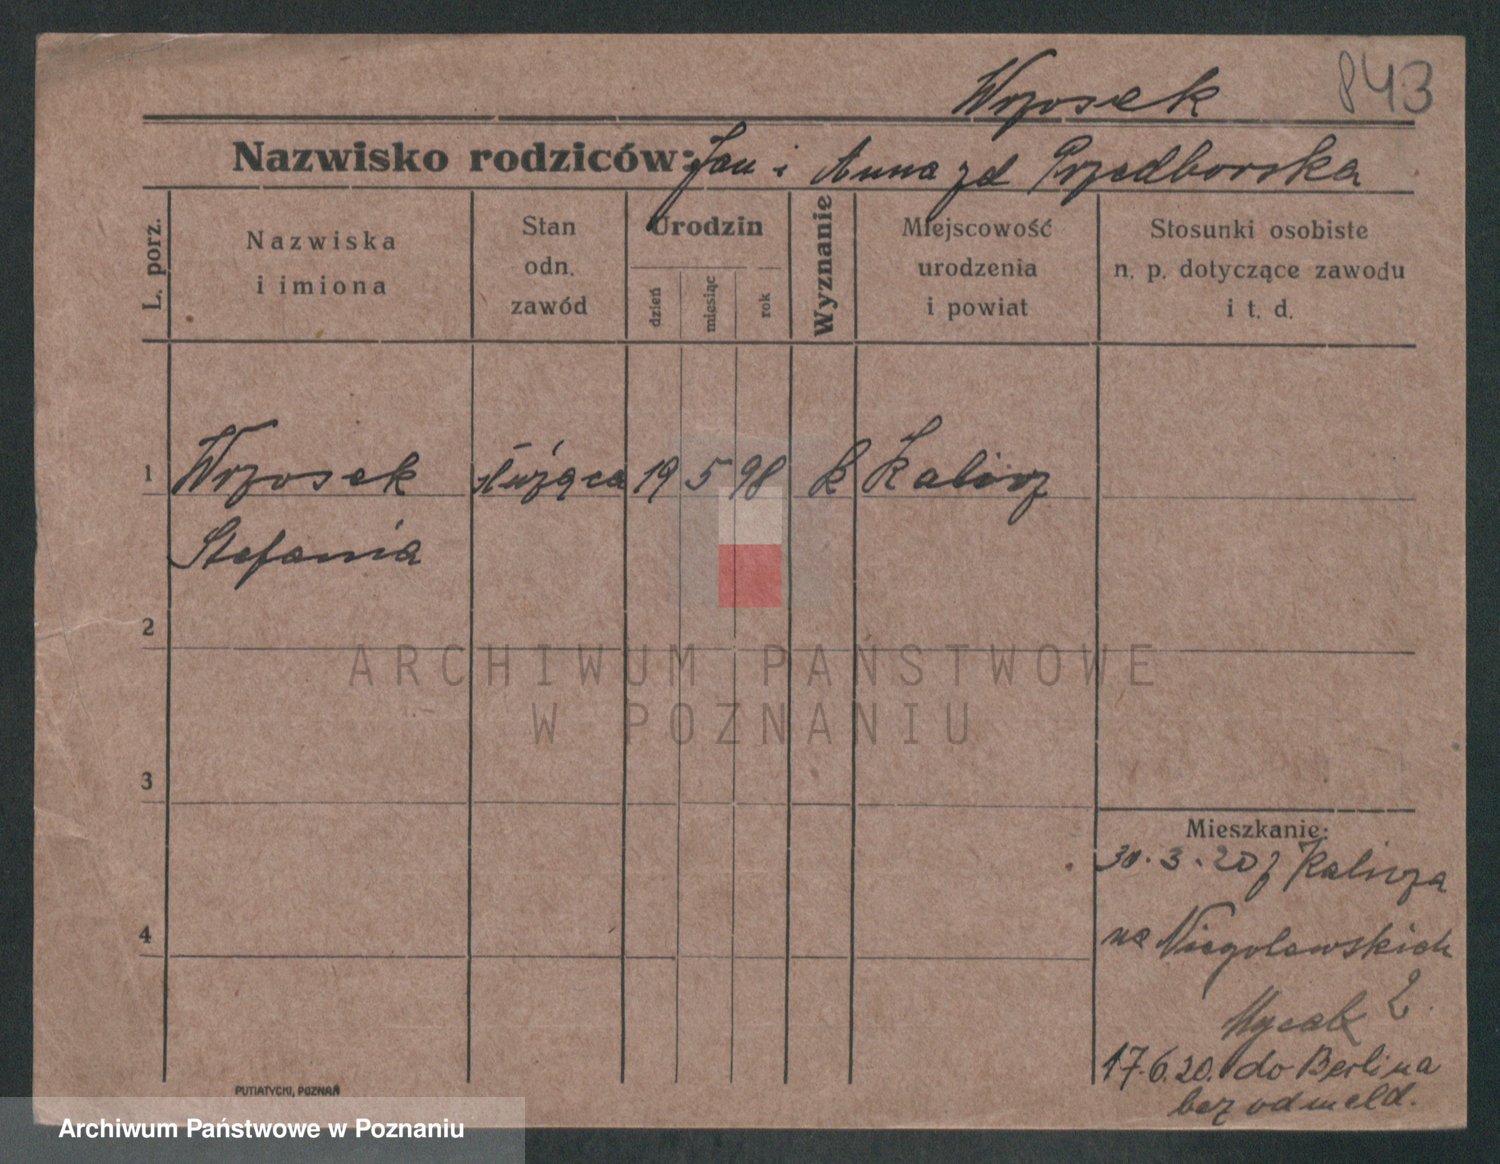 843
Wrzosek
Nazwisko rodziców: Jan i Anna zd Przedborska
L. porz.
Nazwiska
i imiona
Stan
odn.
zawód
Urodzin
dzień
miesiąc
rok
Wyznanie
Miejscowość
urodzenia
i powiat
Stosunki osobiste
n. p. dotyczące zawodu
i t. d.
1 Wrzosek służąca 19 5 98 k Kalisz
Stefania
2
ARCHIWUM PAŃSTWOWE
W POZNANIU
3
Mieszkanie:
30.3.20 z Kalisza
4
na Niegolewskich
2.
17.6.20. do Berlina
bez odmeld.
PUTIATYCKI, POZNAŃ
Archiwum Państwowe w Poznaniu